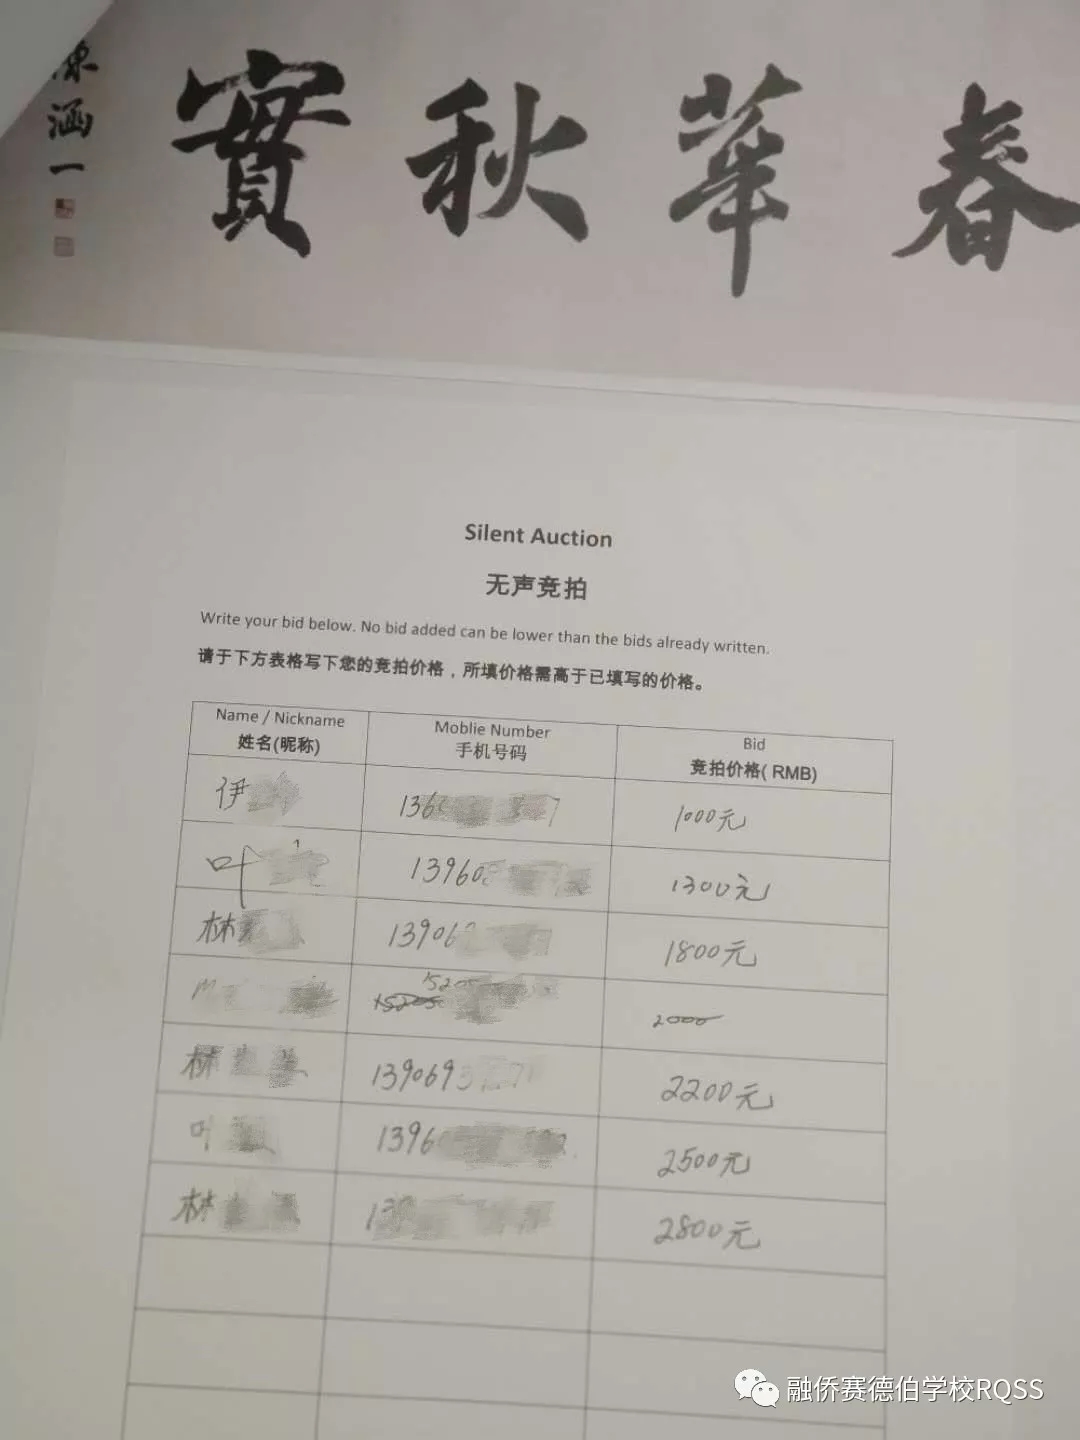 春華秋實
涵一
Silent Auction
无声竞拍
Write your bid below. No bid added can be lower than the bids already written.
请于下方表格写下您的竞拍价格，所填价格需高于已填写的价格。
Name / Nickname Moblie Number Bid
姓名(昵称) 手机号码 竞拍价格( RMB)
伊 136 7 1000元
叶 13960 1300元
林 13906 1800元
15205 2000
林 1390693 2200元
叶 1396 2500元
林 13 2800元
融侨赛德伯学校RQSS